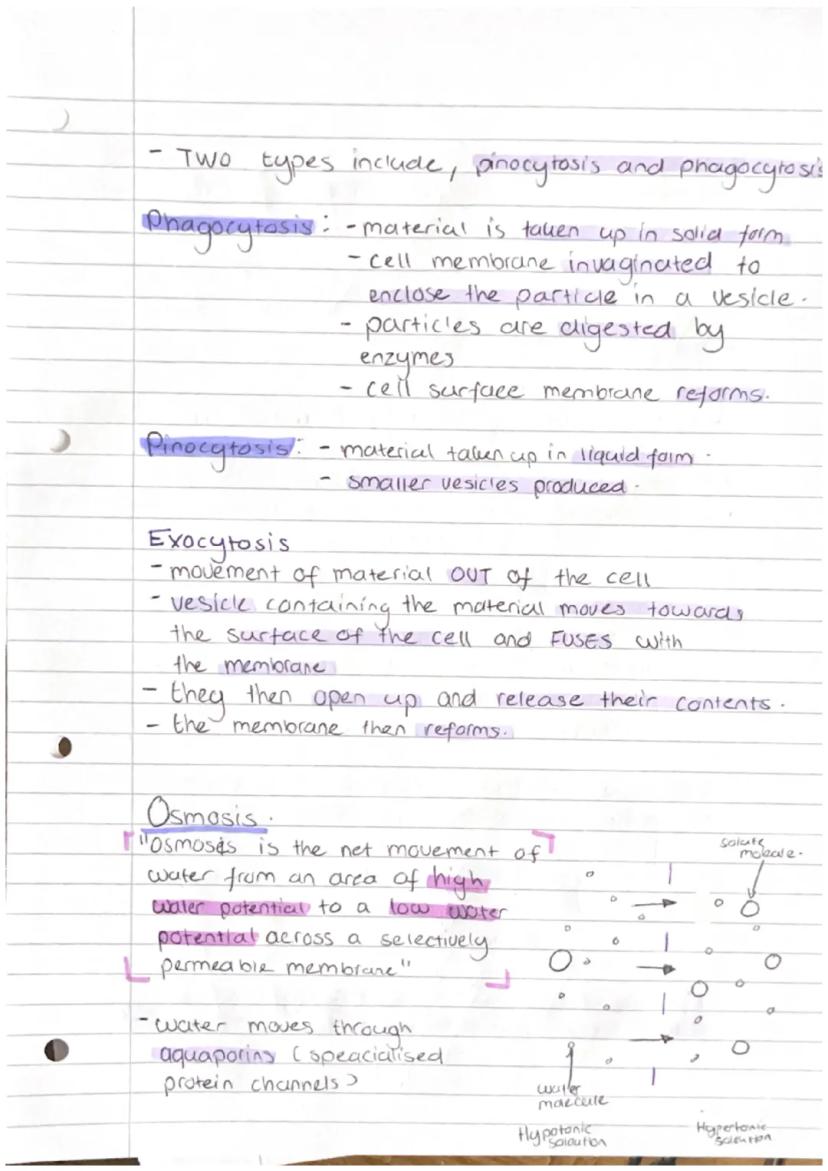 - TWO types include, pinocytosis and phagocytosis
Phagocytosis: - material is taken up in solid form
- cell membrane invaginated to
enclose the particle in a vesicle.
- particles are digested by
enzymes
- cell surface membrane reforms.
Pinocytosis: - material taken up in liquid form.
- smaller vesicles produced.
Exocytosis
- movement of material OUT of the cell
- vesicle containing the material moves towards
the surface of the cell and FUSES with
the membrane
- they then open up and release their contents.
- the membrane then reforms.
Osmosis.
"Osmosis is the net movement of
water from an area of high
water potential to a low water
potential across a selectively
permeable membrane"
- water moves through
aquaporins (speacialised
protein channels)
solute
molecule.
water
molecule
Hypotonic
solution
Hypertonic
solution